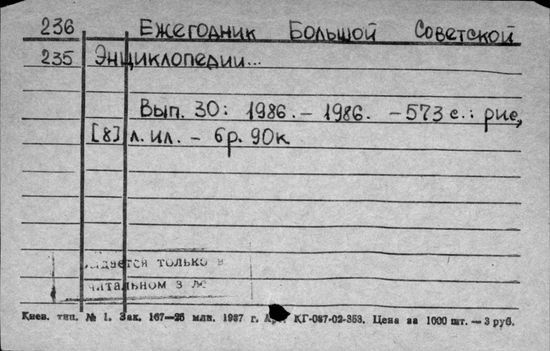 236 Ежегодник Большой Советской
235 Энциклопедии...
Вып. 30: 1986. – 1986. – 573 с.: рис,
[8] л. ил. – 6р. 90к
только в
читальном з
Киев. тип. № 1. Зак. 167—25 млн. 1987 г. КГ-087-02-353. Цена за 1000 шт. — 3 руб.